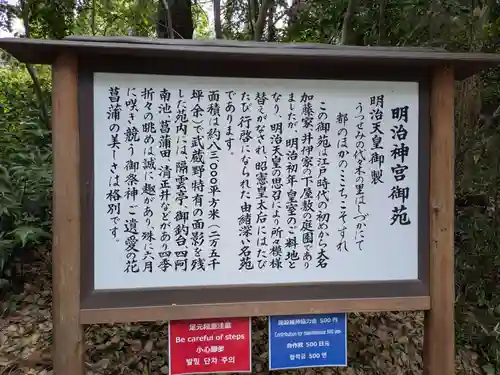 明治神宮御苑
明治天皇御製
うつせみの代々木の里はしづかにて
都のほかのこゝちこそすれ
この御苑は江戸時代の初めから大名
加藤家、井伊家の下屋敷の庭園であり
ましたが、明治初年皇室のご料地と
なり、明治天皇の思召により所々模様
替えがなされ、昭憲皇太后にはたび
たび行啓になられた由緒深い名苑
であります。
面積は約八三〇〇〇平方米(二万五千
坪余)で武蔵野特有の面影を残
した苑内には、隔雲亭・御釣台・四阿
南池・菖蒲田・清正井などがあり四季
折々の眺めは誠に趣があり殊に六月
に咲き競う御祭神ご遺愛の花
菖蒲の美しさは格別です。
足元段差注意
Be careful of steps
小心脚下
발밑 단차 주의
施設維持協力金 500円
Contribution for maintenance 500 yen
自作維持 500日元
협력금 500엔